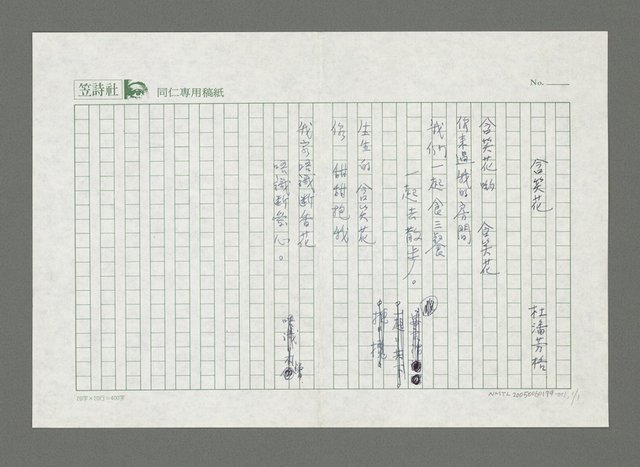 笠詩社
同仁專用稿紙
No.
含笑花
杜潘芳格
含笑花喲 含笑花
你來過我的房間
我們一起食三餐
一起去散步。
生生的含笑花
你 甜甜抱我
我家唔識斷香花
唔識斷愛心。
20字×20行=400字
NMTL20050060199-001, 1/1